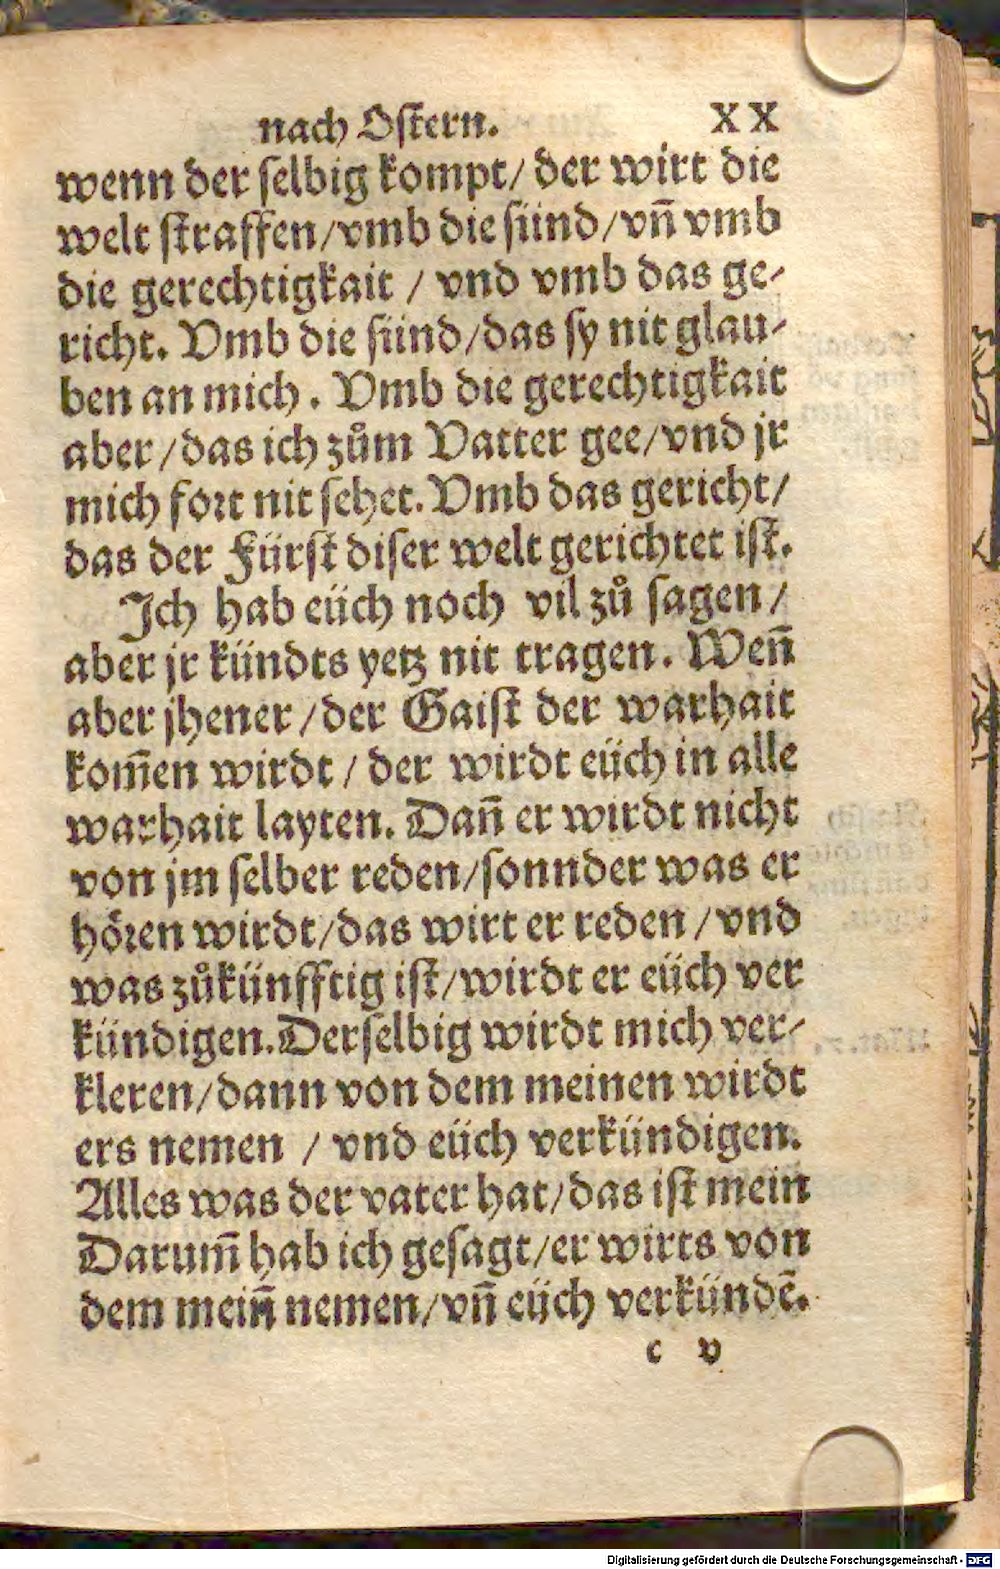 nach Oſtern. XX
wenn der ſelbig kompt/ der wirt die
welt ſtraffen/vmb die ſünd/vn̄ vmb
die gerechtigkait / vnd vmb das ge-
richt. Vmb die ſünd/das ſy nit glau-
ben an mich. Vmb die gerechtigkait
aber/das ich zům Vatter gee/vnd jr
mich fort nit ſehet. Vmb das gericht/
das der Fürſt diſer welt gerichtet iſt.
Ich hab eüch noch vil zů ſagen/
aber jr kündts yetz nit tragen. Wen̄
aber jhener/der Gaiſt der warhait
kom̄en wirdt/ der wirdt eüch in alle
warhait layten. Dan̄ er wirdt nicht
von jm ſelber reden/ſonnder was er
hören wirdt/das wirt er reden/vnd
was zůkünfftig iſt/wirdt er eüch ver
kündigen. Derſelbig wirdt mich ver-
kleren/dann von dem meinen wirdt
ers nemen / vnd eüch verkündigen.
Alles was der vater hat/das iſt mein
Darum̄ hab ich geſagt/er wirts von
dem mein̄ nemen/vn̄ eüch verkündē.
c v
Digitalisierung gefördert durch die Deutsche Forschungsgemeinschaft - DFG